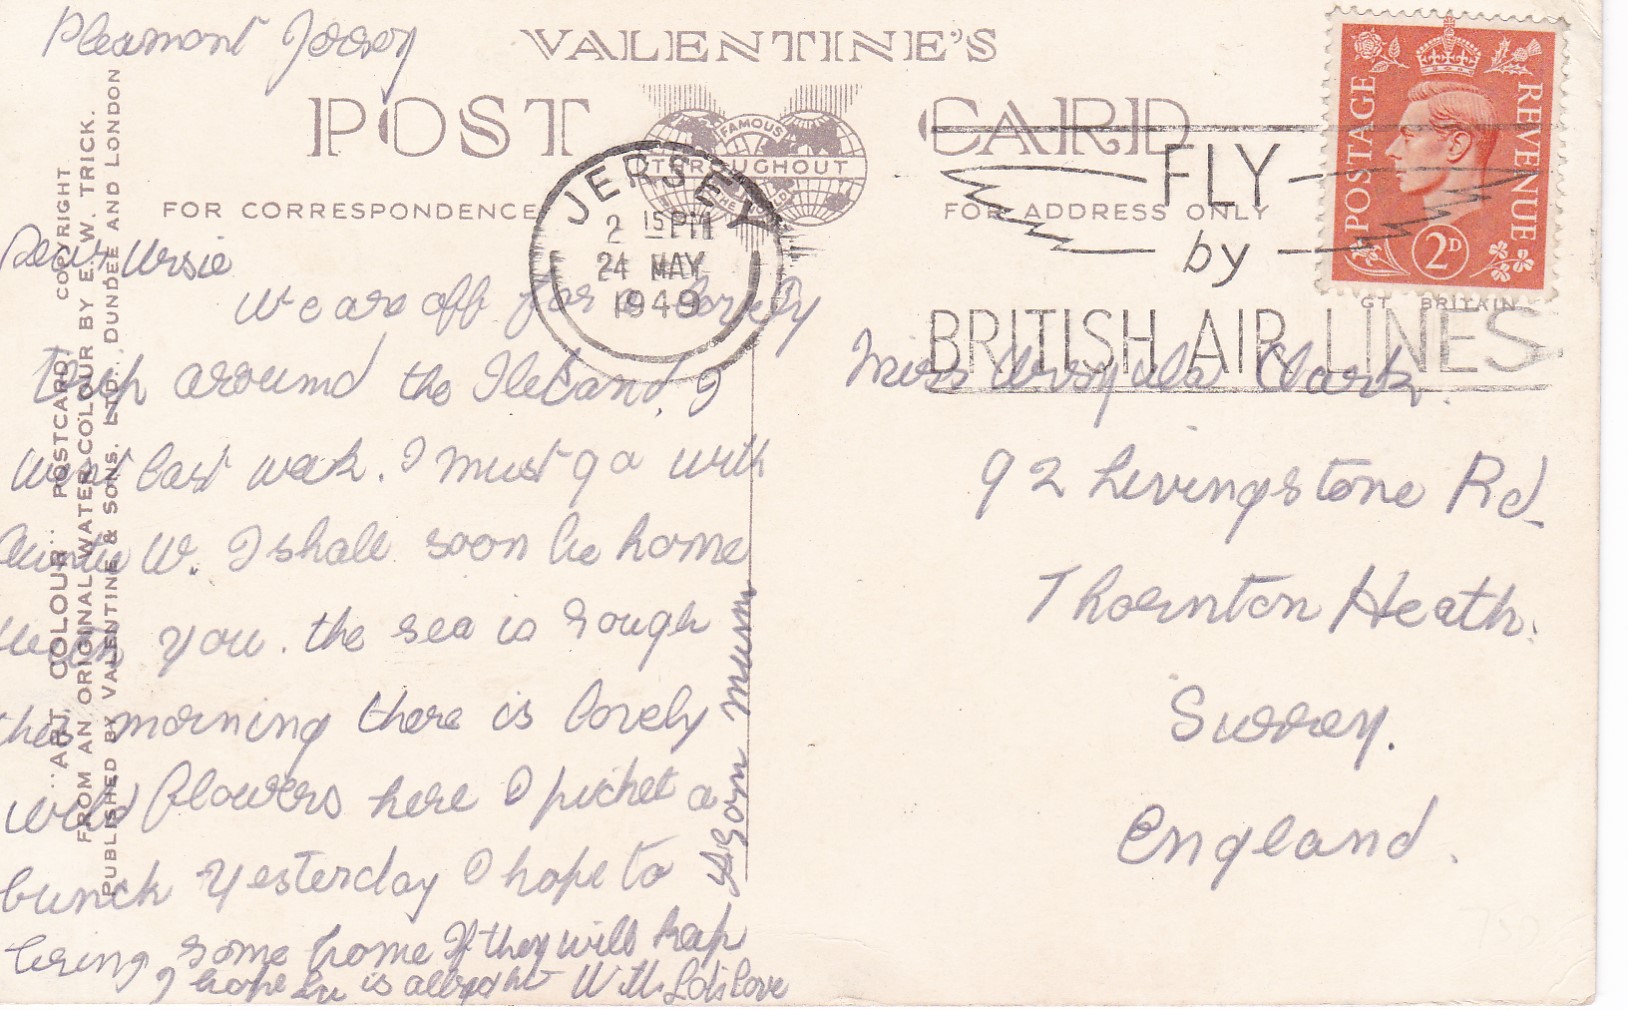 Pleamont Jersey
VALENTINE'S
POST CARD
FAMOUS
THROUGHOUT
THE WORLD
FOR CORRESPONDENCE
FOR ADDRESS ONLY
JERSEY
2 15 PM
24 MAY
1949
FLY
by
BRITISH AIR LINES
POSTAGE
REVENUE
2D
GT BRITAIN
Dear Ursie
We are off for a lovely
trip around the Ileland, I
went last week. I must go with
Auntie W. I shall soon be home
with you. the sea is rough
this morning there is lovely
wild flowers here I picket a
bunch yesterday I hope to
bring some home If they will keep
I hope is allright With Lots Love
From Mum
Miss Ursula Clark.
92 Livingstone Rd
Thornton Heath.
Surrey.
England.
"ART COLOUR" POSTCARD COPYRIGHT
FROM AN ORIGINAL WATER-COLOUR BY E. W. TRICK.
PUBLISHED BY VALENTINE & SONS, LTD., DUNDEE AND LONDON